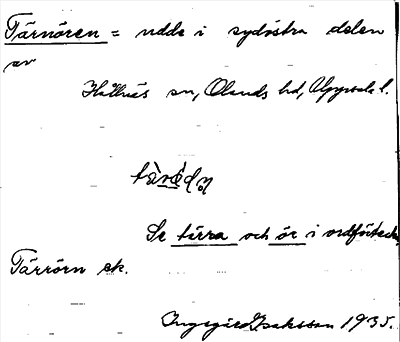 Tärnören = udde i sydöstra delen
av
Hållnäs sn, Olands hd, Uppsala l.
Se tärra och ör i ordförteckn.
Tärrörn sk.
Ingegärd Isaksson 1935.